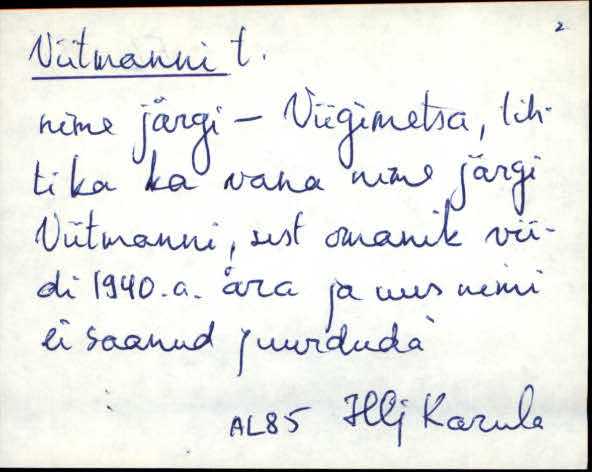 2
Viitmanni t.
nime järgi – Viigimetsa, lih-
tika ka vana nime järgi
Viitmanni, sest omanik vii-
di 1940.a. ära ja uus nimi
ei saanud juurduda
AL85 Hlj Karula